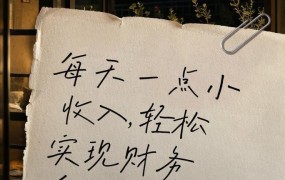 每天一点小
收入,轻松
实现财务